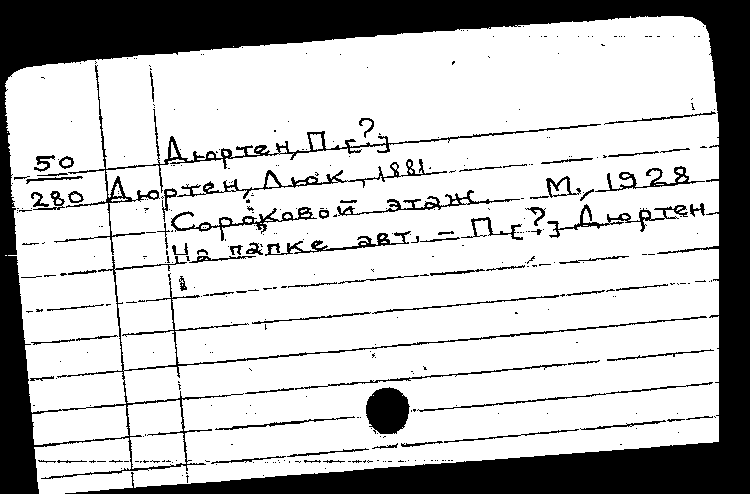 Дюртен, П. [?]
50
280 Дюртен, Люк, 1881.
Сороковой этаж. М., 1928
На папке авт. – П. [?] Дюртен